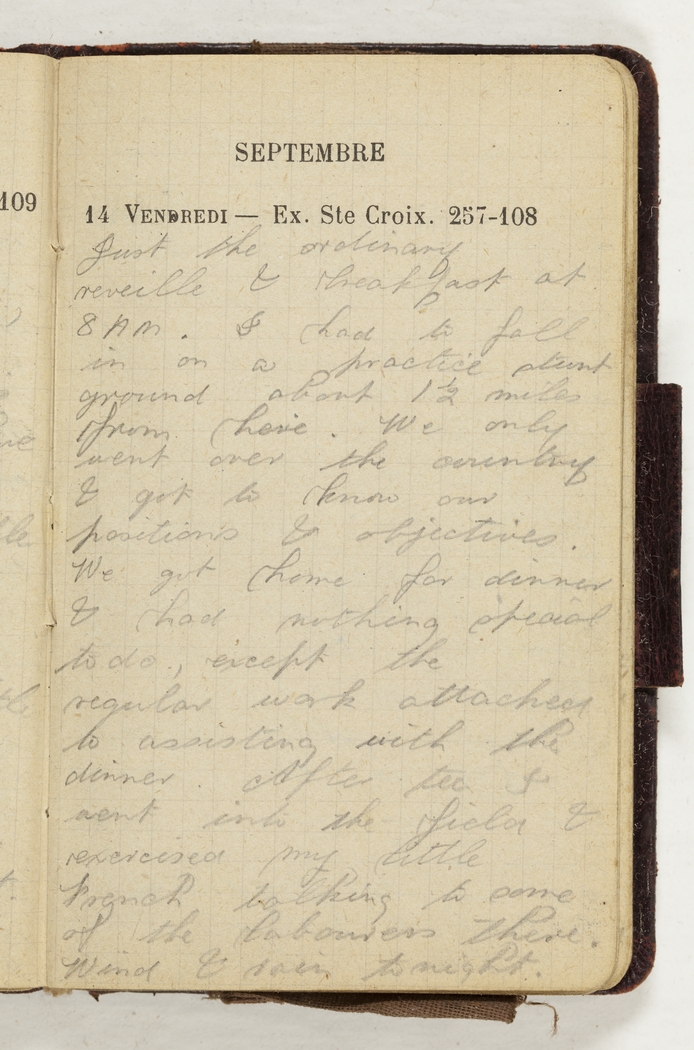 SEPTEMBRE
109
14 VENDREDI — Ex. Ste Croix. 257-108
Just the ordinary
reveille & breakfast at
8 AM. I had to fall
in on a practice stunt
ground about 1½ miles
from here. We only
went over the country
& got to know our
positions & objectives.
We got home for dinner
& had nothing special
to do, except the
regular work attached
to assisting with the
dinner. After tea I
went into the field &
exercised my little
French talking to some
of the labourers there.
Wind & rain tonight.